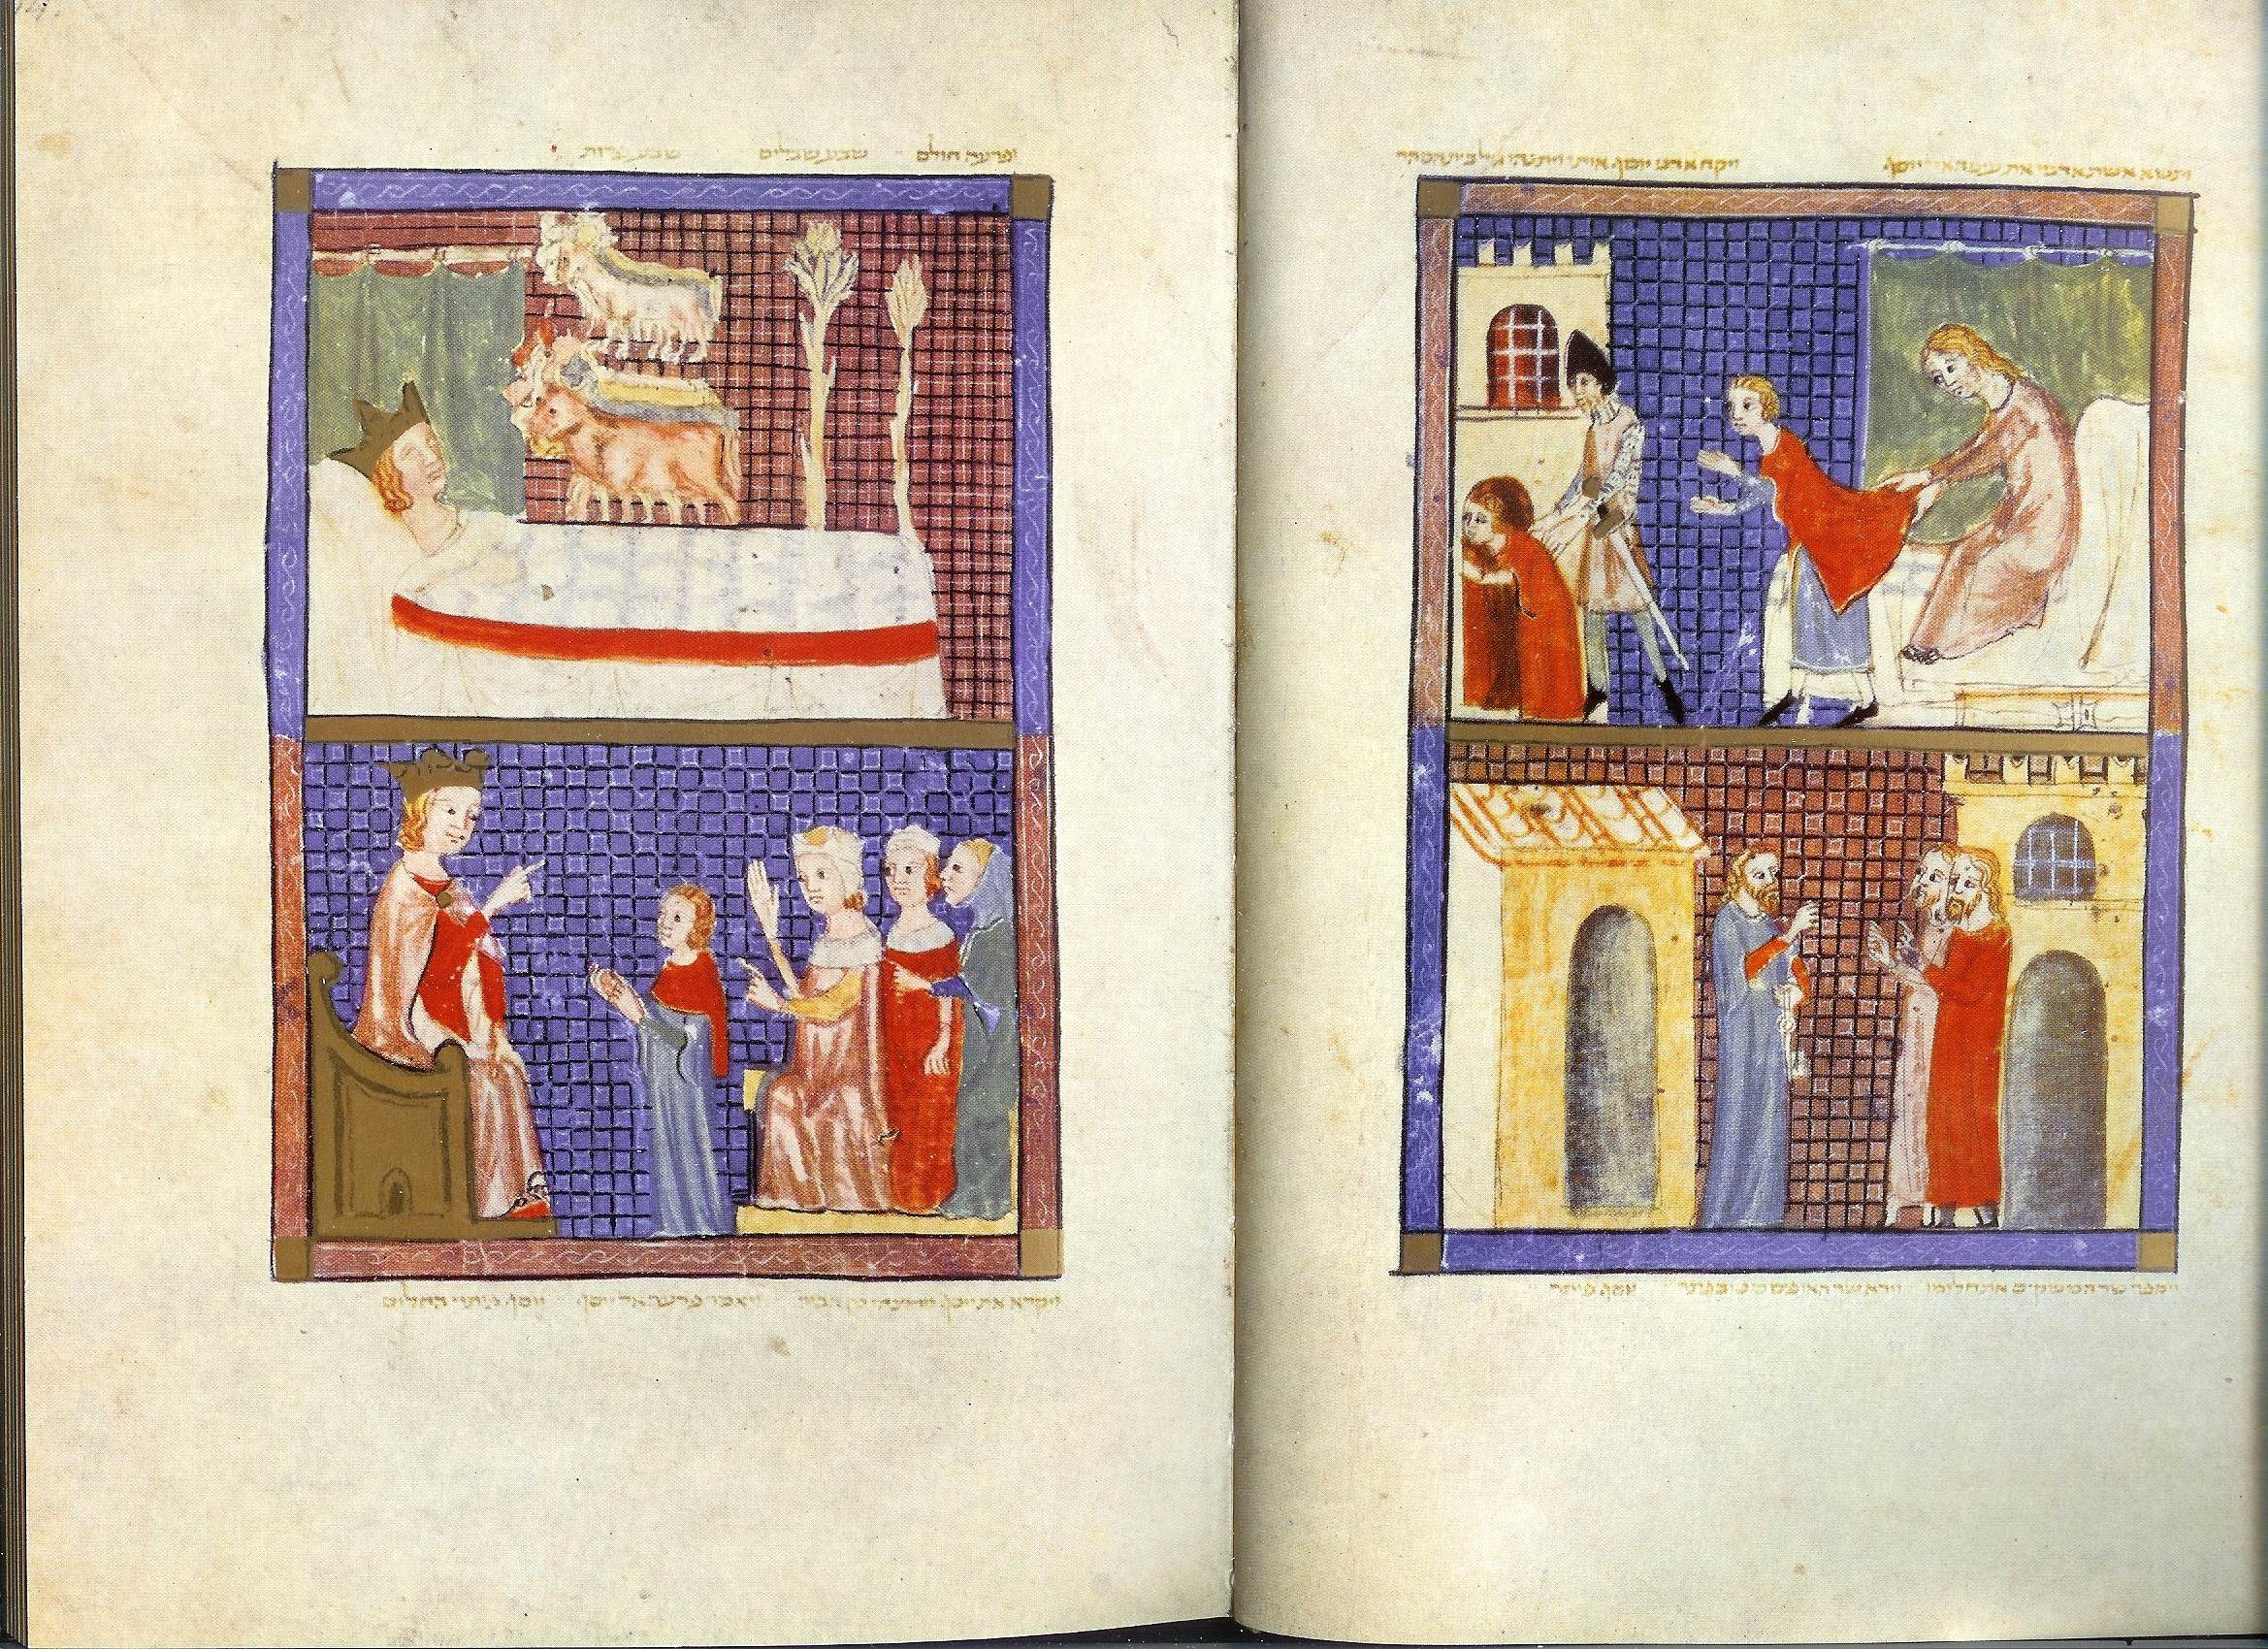 ותשא אשת אדניו את עיניה אל יוסף ויקח אדני יוסף אותו ויתנהו אל בית הסהר
ויספר שר המשקים את חלומו וירא שר האופים כי פתר יוסף פותר
ופרעה חולם שבע שבלים שבע פרות
ויקרא את יוסף ויריצהו מן הבור ויאמר פרעה אל יוסף יוסף פותר החלום